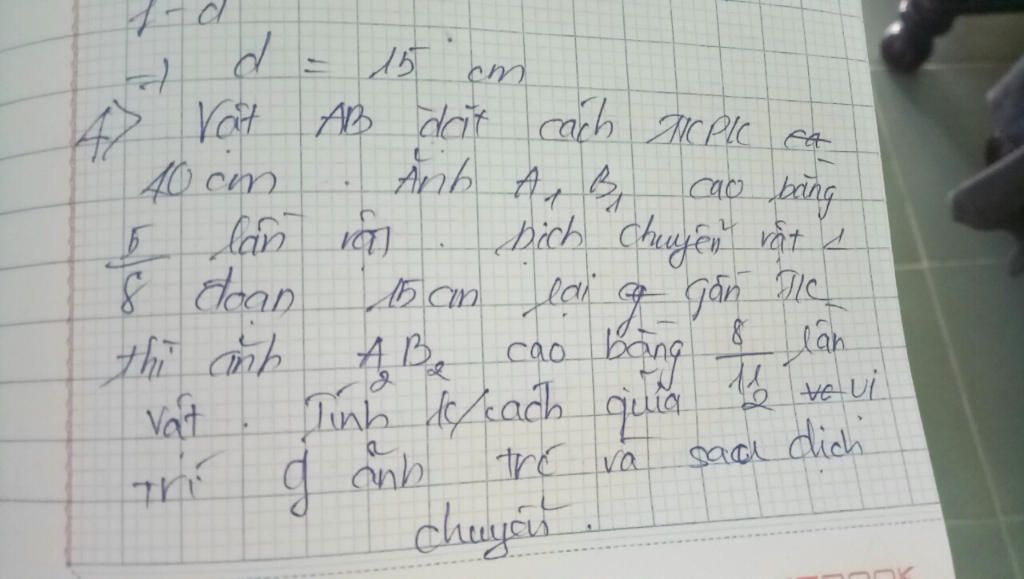 f-d
=> d = 15 cm
4> Vật AB đặt cách TKPK
10 cm. Ảnh A1 B1 cao bằng
5/8 lần vật. Dịch chuyển vật 1
đoạn 15 cm lại gần TK
thì ảnh A2B2 cao bằng 8/11 lần
vật. Tính k/cách giữa 2 vị
trí ảnh trc và sau dịch
chuyển.